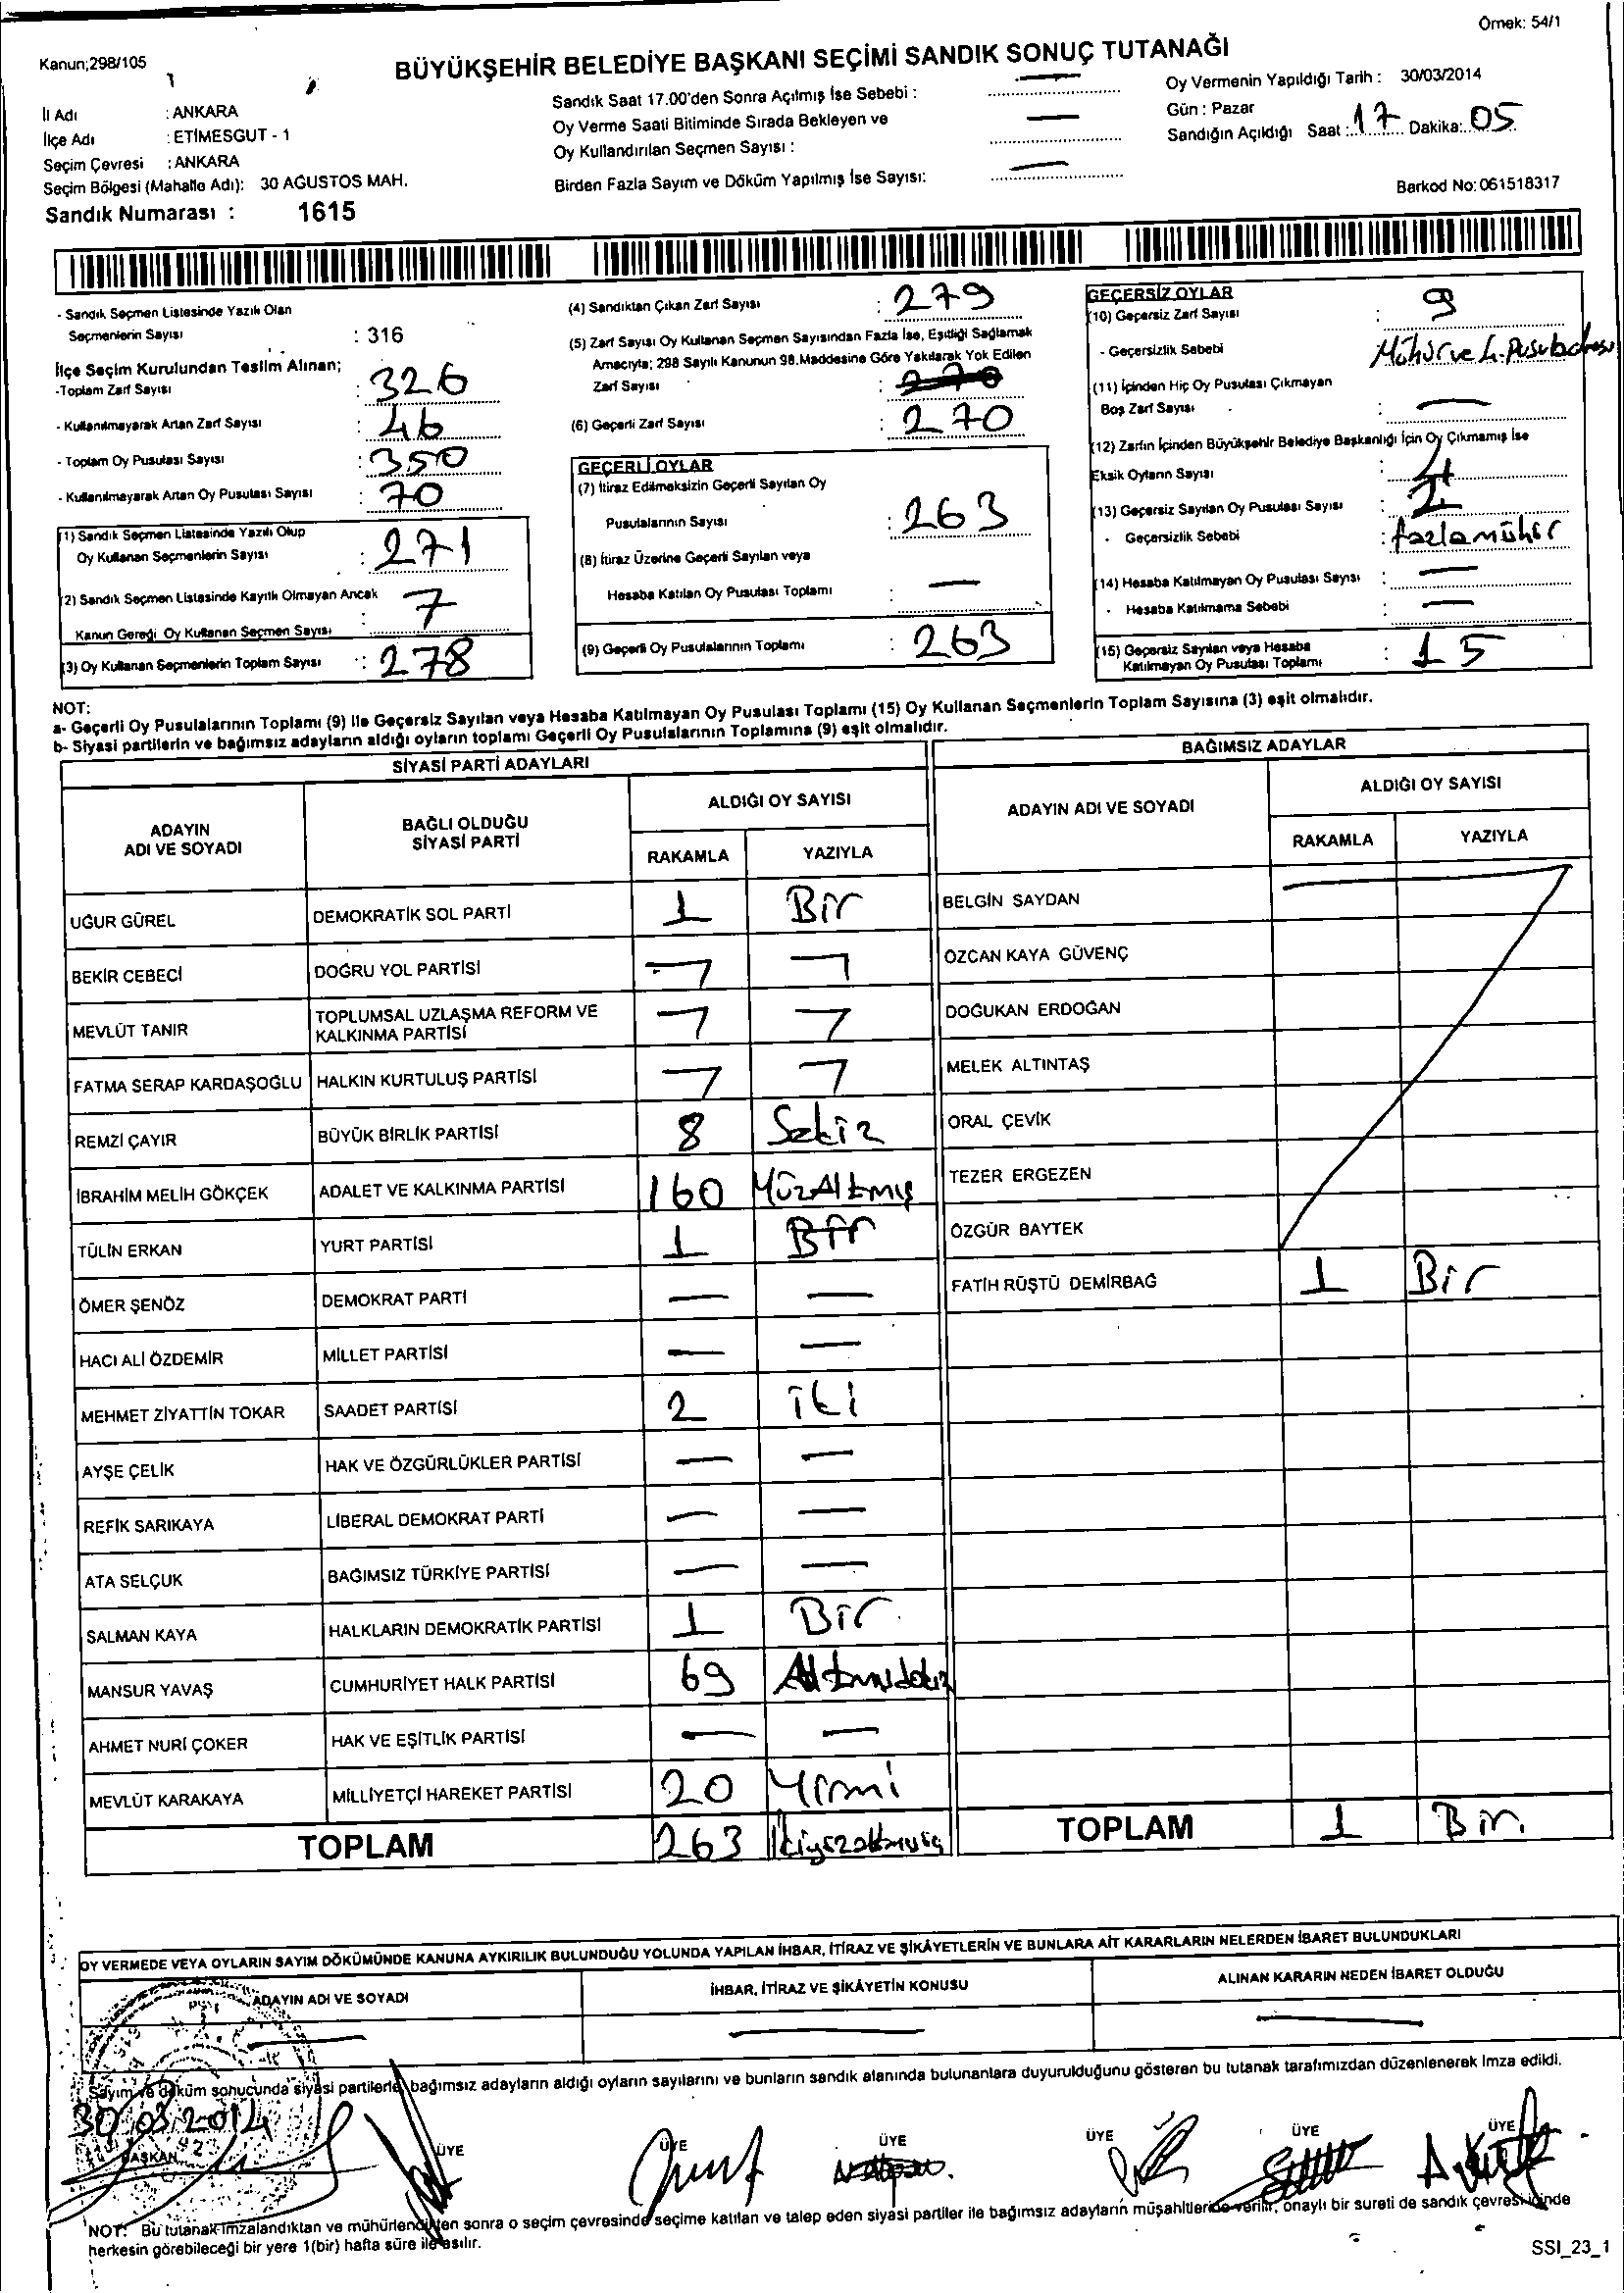 Örnek: 54/1
Kanun;298/105
BÜYÜKŞEHİR BELEDİYE BAŞKANI SEÇİMİ SANDIK SONUÇ TUTANAĞI
İl Adı : ANKARA
İlçe Adı : ETİMESGUT - 1
Seçim Çevresi : ANKARA
Seçim Bölgesi (Mahalle Adı): 30 AĞUSTOS MAH.
Sandık Numarası : 1615
Sandık Saat 17.00'den Sonra Açılmış İse Sebebi : —
Oy Verme Saati Bitiminde Sırada Bekleyen ve
Oy Kullandırılan Seçmen Sayısı : —
Birden Fazla Sayım ve Döküm Yapılmış İse Sayısı: —
Oy Vermenin Yapıldığı Tarih : 30/03/2014
Gün : Pazar
Sandığın Açıldığı Saat : 17 Dakika: 05
Barkod No: 061518317
- Sandık Seçmen Listesinde Yazılı Olan
Seçmenlerin Sayısı : 316
İlçe Seçim Kurulundan Teslim Alınan;
-Toplam Zarf Sayısı : 326
- Kullanılmayarak Artan Zarf Sayısı : 46
- Toplam Oy Pusulası Sayısı : 350
- Kullanılmayarak Artan Oy Pusulası Sayısı : 70
(1) Sandık Seçmen Listesinde Yazılı Olup
Oy Kullanan Seçmenlerin Sayısı : 271
(2) Sandık Seçmen Listesinde Kayıtlı Olmayan Ancak
Kanun Gereği Oy Kullanan Seçmen Sayısı 7
(3) Oy Kullanan Seçmenlerin Toplam Sayısı : 278
(4) Sandıktan Çıkan Zarf Sayısı : 279
(5) Zarf Sayısı Oy Kullanan Seçmen Sayısından Fazla İse, Eşitliği Sağlamak
Amacıyla; 298 Sayılı Kanunun 98.Maddesine Göre Yakılarak Yok Edilen
Zarf Sayısı : 270
(6) Geçerli Zarf Sayısı : 270
GEÇERLİ OYLAR
(7) İtiraz Edilmeksizin Geçerli Sayılan Oy
Pusulalarının Sayısı : 263
(8) İtiraz Üzerine Geçerli Sayılan veya
Hesaba Katılan Oy Pusulası Toplamı : —
(9) Geçerli Oy Pusulalarının Toplamı : 263
GEÇERSİZ OYLAR
(10) Geçersiz Zarf Sayısı : 9
- Geçersizlik Sebebi Mühür ve
(11) İçinden Hiç Oy Pusulası Çıkmayan
Boş Zarf Sayısı : —
(12) Zarfın İçinden Büyükşehir Belediye Başkanlığı İçin Oy Çıkmamış İse
Eksik Oyların Sayısı : 4
(13) Geçersiz Sayılan Oy Pusulası Sayısı : 2
- Geçersizlik Sebebi : fazla mühür
(14) Hesaba Katılmayan Oy Pusulası Sayısı : —
- Hesaba Katılmama Sebebi : —
(15) Geçersiz Sayılan veya Hesaba
Katılmayan Oy Pusulası Toplamı : 15
NOT:
a- Geçerli Oy Pusulalarının Toplamı (9) İle Geçersiz Sayılan veya Hesaba Katılmayan Oy Pusulası Toplamı (15) Oy Kullanan Seçmenlerin Toplam Sayısına (3) eşit olmalıdır.
b- Siyasi partilerin ve bağımsız adayların aldığı oyların toplamı Geçerli Oy Pusulalarının Toplamına (9) eşit olmalıdır.
SİYASİ PARTİ ADAYLARI
ADAYIN ADI VE SOYADI
BAĞLI OLDUĞU SİYASİ PARTİ
ALDIĞI OY SAYISI
RAKAMLA YAZIYLA
UĞUR GÜREL DEMOKRATİK SOL PARTİ 1 Bir
BEKİR CEBECİ DOĞRU YOL PARTİSİ — —
MEVLÜT TANIR TOPLUMSAL UZLAŞMA REFORM VE KALKINMA PARTİSİ — —
FATMA SERAP KARDAŞOĞLU HALKIN KURTULUŞ PARTİSİ — —
REMZİ ÇAYIR BÜYÜK BİRLİK PARTİSİ 8 Sekiz
İBRAHİM MELİH GÖKÇEK ADALET VE KALKINMA PARTİSİ 160 YüzAltmış
TÜLİN ERKAN YURT PARTİSİ 1 Bir
ÖMER ŞENÖZ DEMOKRAT PARTİ — —
HACI ALİ ÖZDEMİR MİLLET PARTİSİ — —
MEHMET ZİYATTİN TOKAR SAADET PARTİSİ 2 iki
AYŞE ÇELİK HAK VE ÖZGÜRLÜKLER PARTİSİ — —
REFİK SARIKAYA LİBERAL DEMOKRAT PARTİ — —
ATA SELÇUK BAĞIMSIZ TÜRKİYE PARTİSİ — —
SALMAN KAYA HALKLARIN DEMOKRATİK PARTİSİ 1 Bir
MANSUR YAVAŞ CUMHURİYET HALK PARTİSİ 69
AHMET NURİ ÇOKER HAK VE EŞİTLİK PARTİSİ — —
MEVLÜT KARAKAYA MİLLİYETÇİ HAREKET PARTİSİ 20 Yirmi
TOPLAM 263
BAĞIMSIZ ADAYLAR
ADAYIN ADI VE SOYADI
ALDIĞI OY SAYISI
RAKAMLA YAZIYLA
BELGİN SAYDAN
ÖZCAN KAYA GÜVENÇ
DOĞUKAN ERDOĞAN
MELEK ALTINTAŞ
ORAL ÇEVİK
TEZER ERGEZEN
ÖZGÜR BAYTEK
FATİH RÜŞTÜ DEMİRBAĞ 1 Bir
TOPLAM 1 Bir
OY VERMEDE VEYA OYLARIN SAYIM DÖKÜMÜNDE KANUNA AYKIRILIK BULUNDUĞU YOLUNDA YAPILAN İHBAR, İTİRAZ VE ŞİKÂYETLERİN VE BUNLARA AİT KARARLARIN NELERDEN İBARET BULUNDUKLARI
ADAYIN ADI VE SOYADI İHBAR, İTİRAZ VE ŞİKÂYETİN KONUSU ALINAN KARARIN NEDEN İBARET OLDUĞU
— — —
Sayım ve döküm sonucunda siyasi partilerle bağımsız adayların aldığı oyların sayılarını ve bunların sandık alanında bulunanlara duyurulduğunu gösteren bu tutanak tarafımızdan düzenlenerek imza edildi.
30.03.2014
BAŞKAN ÜYE ÜYE ÜYE ÜYE ÜYE ÜYE
NOT: Bu tutanak imzalandıktan ve mühürlendikten sonra o seçim çevresinde seçime katılan ve talep eden siyasi partiler ile bağımsız adayların müşahitlerine verilir, onaylı bir sureti de sandık çevresi içinde
herkesin görebileceği bir yere 1(bir) hafta süre ile asılır.
SSI_23_1